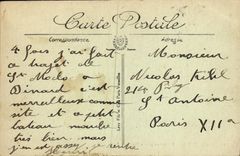 Carte Postale
Correspondance
Adresse
4 fois j'ai fait
ce trajet de
St Malo à
Dinard c'est
merveilleux comme
site et ce petit
bateau marche
très bien mais
j'en ai assez je rentre
Monsieur
Nicolas
214 St Antoine
Paris XIIa